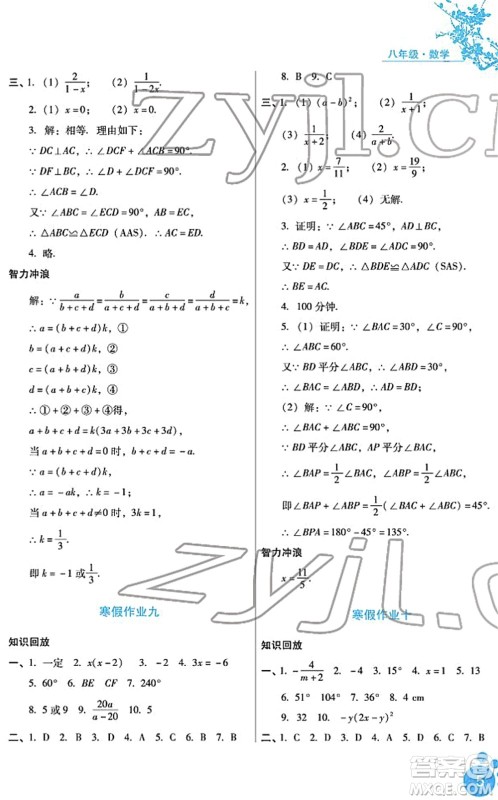 八年级·数学
三、1. (1) 2/(1-x)； (2) 1/(1-2x).
2. (1) x=0； (2) x=0.
3. 解：相等. 理由如下：
∵ DC⊥AC，∴ ∠DCF+∠ACB=90°.
∵ DF⊥BC，∴ ∠D+∠DCF=90°.
∴ ∠ACB=∠D.
又∵ ∠ABC=∠ECD=90°，AB=EC，
∴ △ABC≌△ECD (AAS). ∴ AC=ED.
4. 略.
智力冲浪
解：∵ a/(b+c+d)=b/(a+c+d)=c/(a+b+d)=d/(a+b+c)=k，
∴ a=(b+c+d)k，①
b=(a+c+d)k，②
c=(a+b+d)k，③
d=(a+b+c)k，④
∴ ①+②+③+④得，
a+b+c+d=k(3a+3b+3c+3d).
当 a+b+c+d=0 时，b+c+d=-a.
∵ a=(b+c+d)k，
∴ a=-ak，∴ k=-1；
当 a+b+c+d≠0 时，
∴ k=1/3.
即 k=-1 或 1/3.
寒假作业九
知识回放
一、1. 一定 2. x(x-2) 3. -2 4. x=-6
5. 60° 6. BE CF 7. 290°
8. 5 或 9 9. 20a/(a-20) 10. 5
二、1. D 2. D 3. A 4. D 5. C 6. D 7. B
8. B 9. C
三、1. (1) (a-b)²； (2) 1/(x+1)；
(3) 1/(x+2)； (4) 2/(a+b).
2. (1) x=7/11； (2) x=19/9；
(3) x=1/2； (4) 无解.
3. 证明：∵ ∠ABC=45°，AD⊥BC，
∴ BD=AD，∠BDE=∠ADC=90°.
又∵ DE=DC，∴ △BDE≌△ADC (SAS).
∴ BE=AC.
4. 100 分钟.
5. (1) 证明：∵ ∠BAC=30°，∠C=90°，
∴ ∠ABC=60°.
又∵ BD 平分∠ABC，∴ ∠ABD=30°.
∴ ∠BAC=∠ABD.
(2) 解：∵ ∠C=90°，
∴ ∠BAC+∠ABC=90°.
∵ BD 平分∠ABC，AP 平分∠BAC，
∴ ∠BAP=1/2∠BAC，∠ABP=1/2∠ABC，
即∠BAP+∠ABP=1/2(∠BAC+∠ABC)=45°.
∴ ∠BPA=180°-45°=135°.
智力冲浪
x=11/5.
寒假作业十
知识回放
一、1. -4/(m+2) 2. -4 3. 15° 4. x=1 5. 13
6. 90° 7. 51° 8. 4 cm
9. 32 10. -y(2x-y)²
二、1. C 2. B 3. C 4. C 5. D 6. C 7. B
zyjl.cn
zyjl.cn
答案